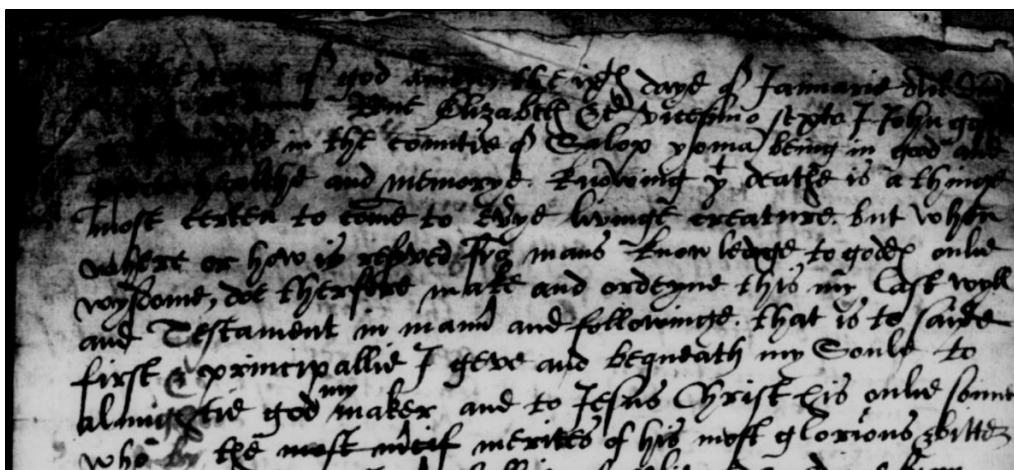 name of god amen the ixth daye of Januarie
Elizabeth &c vicesimo sexto I John
in the countie of Salop yoma being in god and
healthe and memorye. knowing yt deathe is a thinge
most certen to come to evrye livinge creature. but when
where or how is resrved fro mans knowledge to godes onlie
wysdome, doe therfore make and ordeyne this my last wyll
and Testament in mannr and followinge. that is to saide
first & principallie I geve and bequeath my Soule to
almightie god my maker and to Jesus Christ his onlie sonne
who by the most merites of his most glorious